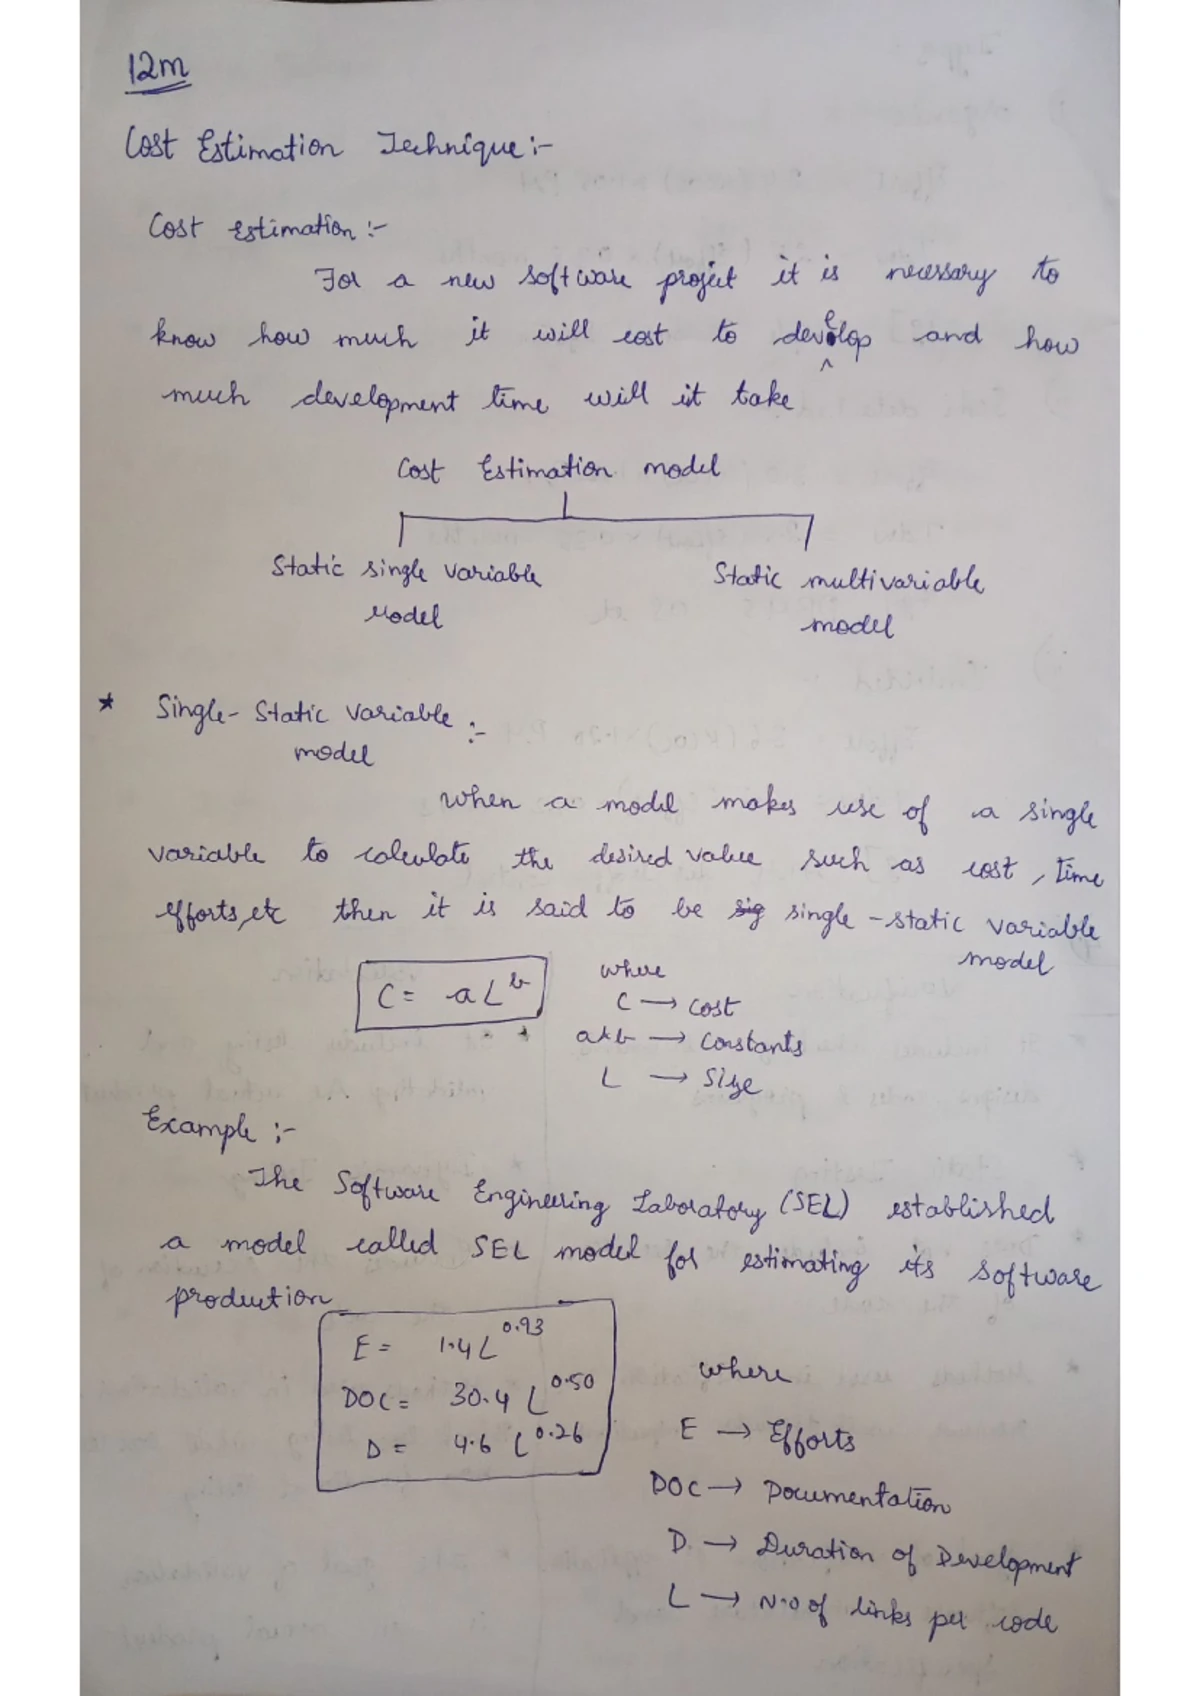 12m
Cost Estimation Technique :-
Cost Estimation :-
For a new software project it is necessary to
know how much it will cost to develop and how
much development time will it take
Cost Estimation model
Static single variable Model
Static multivariable model
* Single-Static Variable model :-
When a model makes use of a single
variable to calculate the desired value such as cost, time
efforts, etc then it is said to be sig single-static variable
model
C = aL^b
where
C → Cost
a & b → Constants
L → Size
Example :-
The Software Engineering Laboratory (SEL) established
a model called SEL model for estimating its software
production
E = 1.4 L^0.93
DOC = 30.4 L^0.50
D = 4.6 L^0.26
where
E → Efforts
DOC → Documentation
D → Duration of Development
L → N.O of links per code